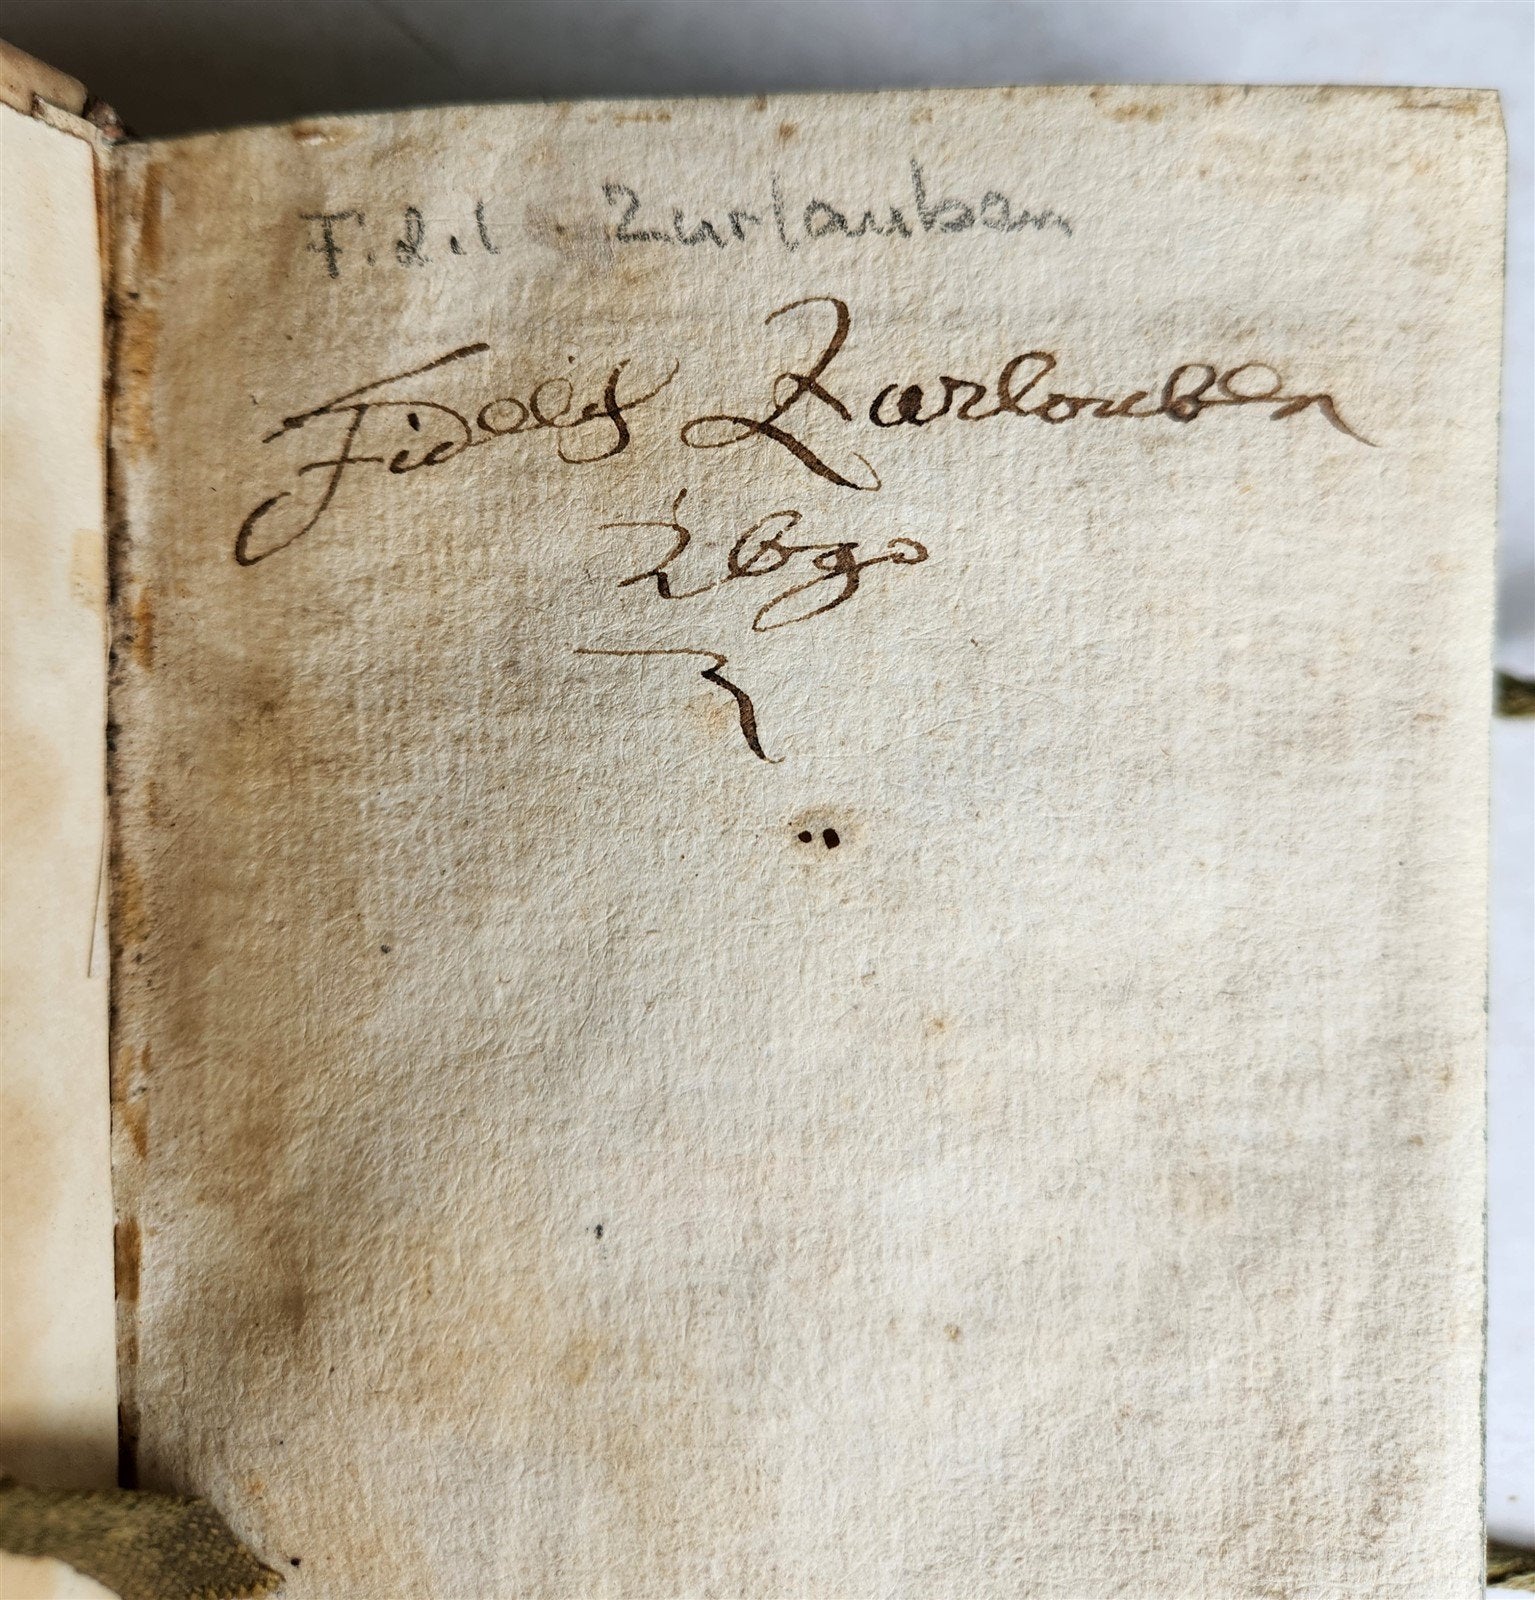 F. d. l. Zurlauben
Fidelis Zurlauben